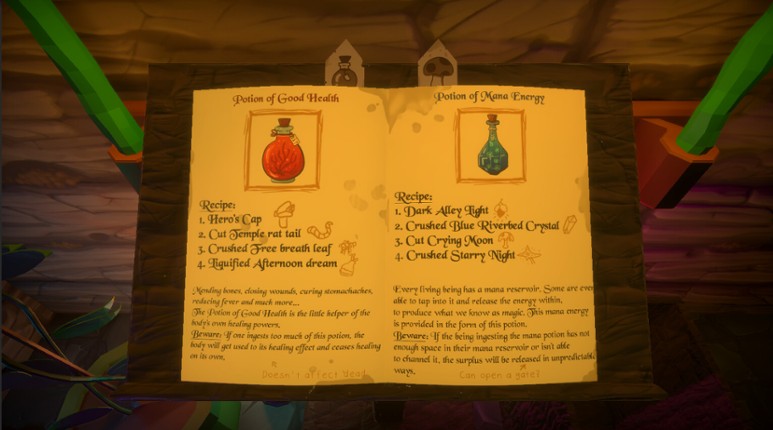 Potion of Good Health
Recipe:
1. Hero's Cap
2. Cut Temple rat tail
3. Crushed Free breath leaf
4. Liquified Afternoon dream
Mending bones, closing wounds, curing stomachaches,
reducing fever and much more...
The Potion of Good Health is the little helper of the
body's own healing powers.
Beware: If one ingests too much of this potion, the
body will get used to its healing effect and ceases healing
on its own.
Doesn't affect dead
Potion of Mana Energy
Recipe:
1. Dark Alley Light
2. Crushed Blue Riverbed Crystal
3. Cut Crying Moon
4. Crushed Starry Night
Every living being has a mana reservoir. Some are even
able to tap into it and release the energy within,
to produce what we know as magic. This mana energy
is provided in the form of this potion.
Beware: If the being ingesting the mana potion has not
enough space in their mana reservoir or isn't able
to channel it, the surplus will be released in unpredictable
ways.
Can open a gate?